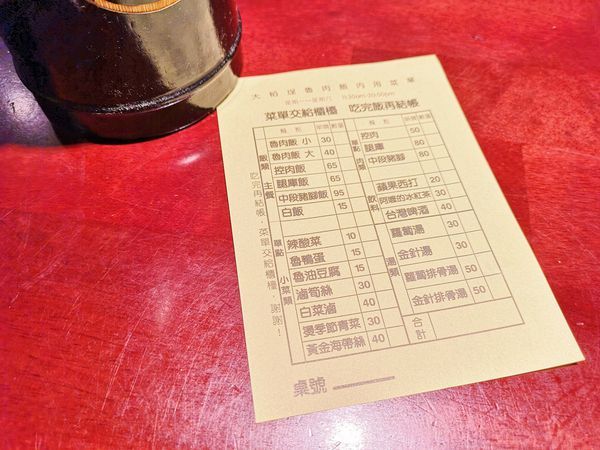 大稻埕魯肉飯內用菜單
菜單交給櫃檯 吃完飯再結帳
飯類 主餐
魯肉飯 小 30
魯肉飯 大 40
控肉飯 65
腿庫飯 65
中段豬腳飯 95
白飯 15
單點 小菜類
辣酸菜 10
魯鴨蛋 15
魯油豆腐 15
滷筍絲 30
白菜滷 40
燙季節青菜 30
黃金海帶絲 40
單點 肉類
控肉 50
腿庫 80
中段豬腳 80
飲料
蘋果西打 20
阿嬤的冰紅茶 30
台灣啤酒 40
湯類
蘿蔔湯 30
金針湯 30
蘿蔔排骨湯 50
金針排骨湯 50
合計
吃完再結帳，菜單交給櫃檯，謝謝！
桌號